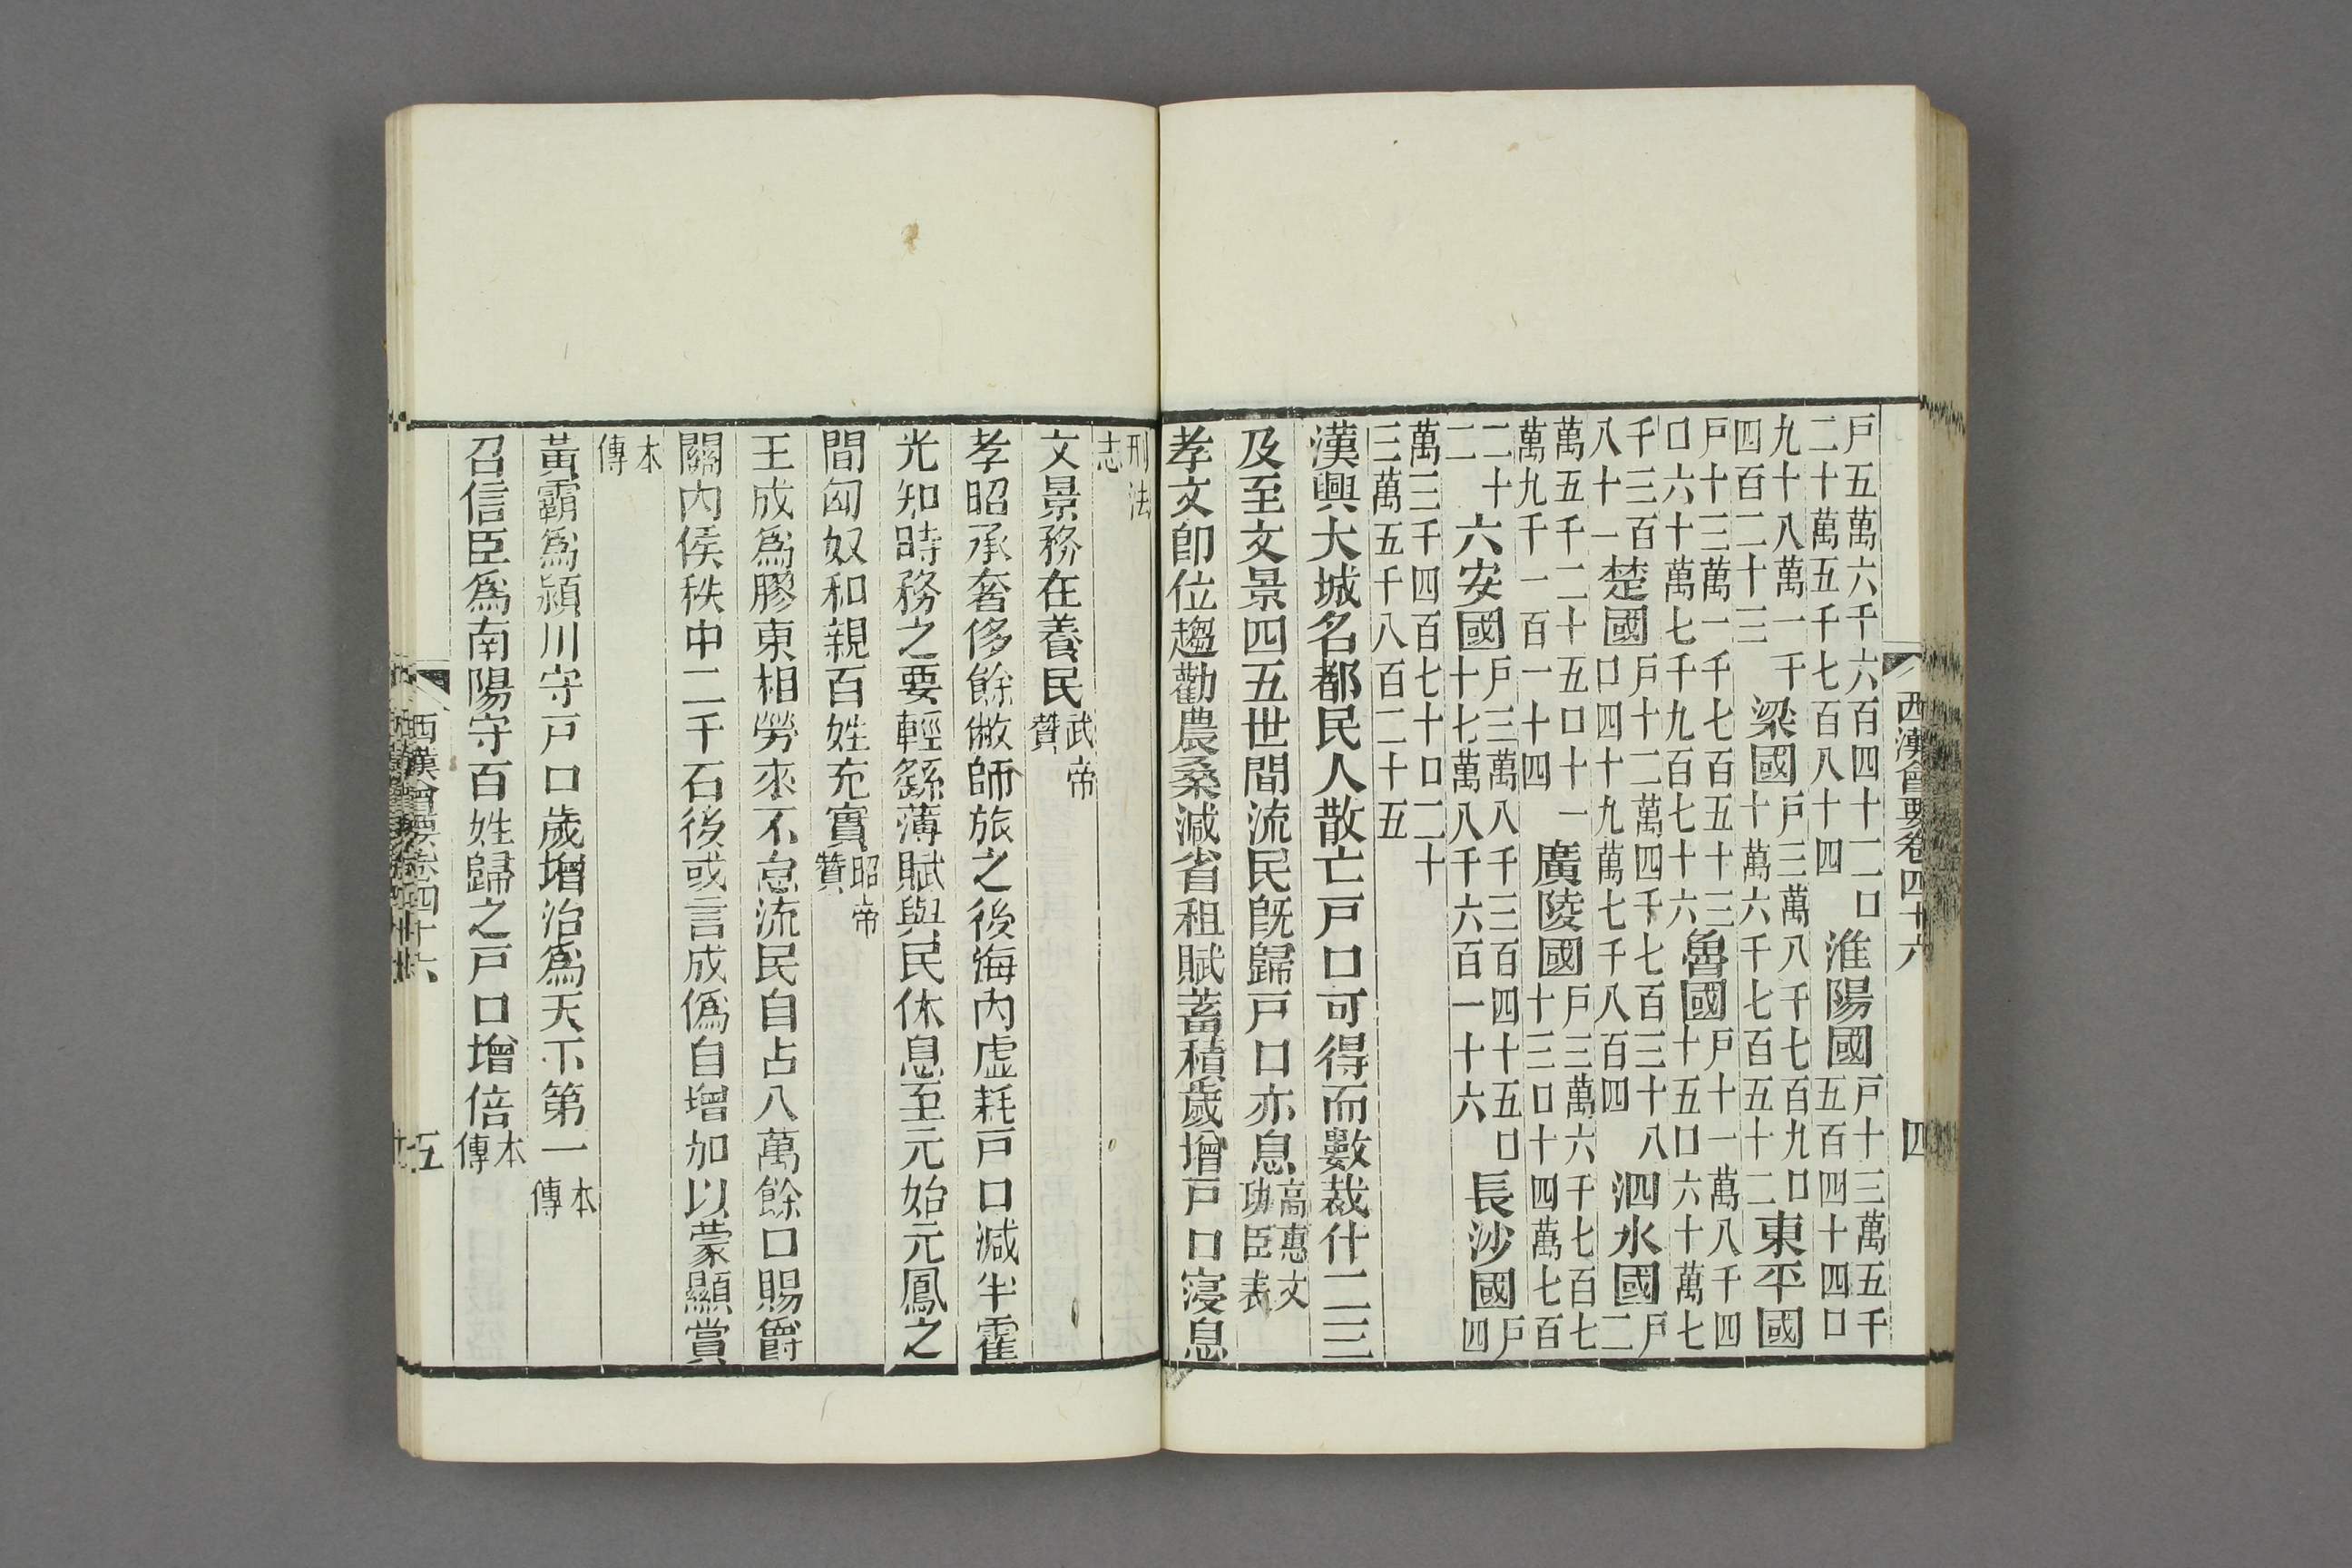 西漢會要卷四十六 四
戶五萬六千六百四十二口二十萬五千七百八十四淮陽國戶十三萬五千五百四十四口
九十八萬一千四百二十三梁國戶三萬八千七百九口十萬六千七百五十二東平國
戶十三萬一千七百五十三口六十萬七千九百七十六魯國戶十一萬八千四十五口六十萬七
千三百八十一楚國戶十二萬四千七百三十八口四十九萬七千八百四泗水國戶二
萬五千二十五口十一萬九千一百一十四廣陵國戶三萬六千七百七十三口十四萬七百
二十二六安國戶三萬八千三百四十五口十七萬八千六百一十六長沙國戶四
萬三千四百七十口二十三萬五千八百二十五
漢興大城名都民人散亡戶口可得而數裁什二三
及至文景四五世間流民旣歸戶口亦息高惠文功臣表
孝文卽位趨勸農桑減省租賦蓄積歲增戶口寖息
刑法志
文景務在養民武帝贊
孝昭承奢侈餘敝師旅之後海內虛耗戶口減半霍
光知時務之要輕繇薄賦與民休息至元始元鳳之
間匈奴和親百姓充實昭帝贊
王成爲膠東相勞來不怠流民自占八萬餘口賜爵
關內侯秩中二千石後或言成僞自增加以蒙顯賞
本傳
黃霸爲潁川守戶口歲增治爲天下第一本傳
召信臣爲南陽守百姓歸之戶口增倍本傳
西漢會要卷四十六 五